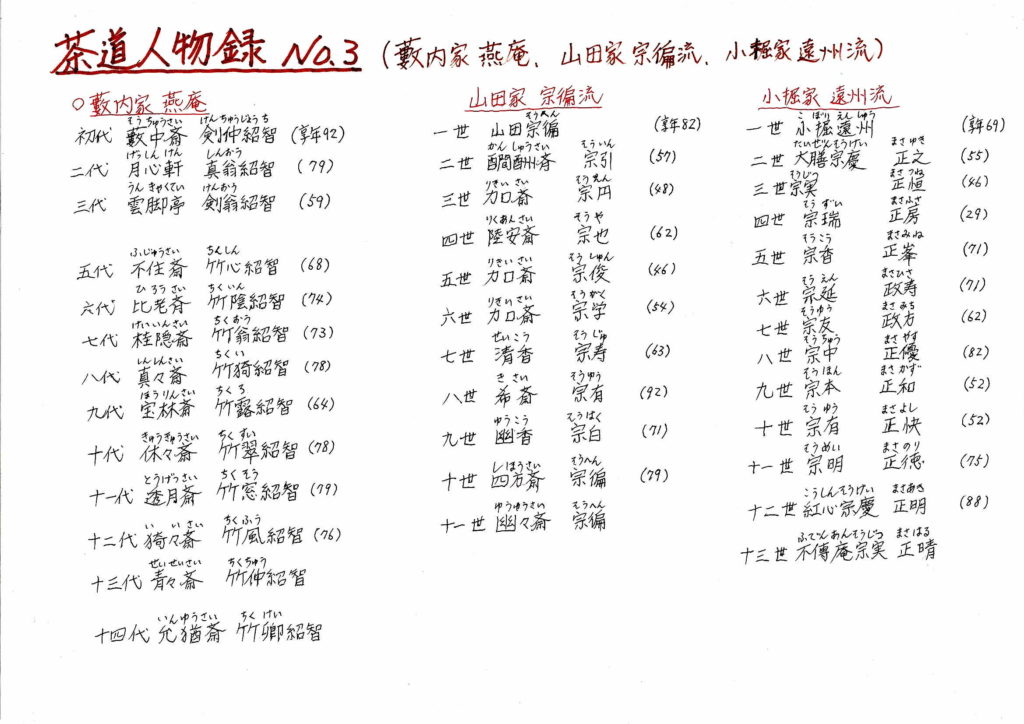 茶道人物録 No.3 (藪内家 燕庵、山田家 宗徧流、小掘家 遠州流)
○藪内家 燕庵
そうちゅうさい けんちゅうじょうち
初代 藪中斎 剣仲紹智 (享年92)
げっしんけん しんおう
二代 月心軒 真翁紹智 (79)
うんきゃくてい けんおう
三代 雲脚亭 剣翁紹智 (59)
ふじゅうさい ちくしん
五代 不住斎 竹心紹智 (68)
ひろうさい ちくいん
六代 比老斉 竹陰紹智 (74)
けいいんさい ちくおう
七代 桂隠斎 竹翁紹智 (73)
しんしんさい ちくい
八代 真々斎 竹猗紹智 (78)
ほうりんさい ちくろ
九代 宝林斎 竹露紹智 (64)
きゅうきゅうさい ちくすい
十代 休々斎 竹翠紹智 (78)
とうげつさい ちくそう
十一代 透月斎 竹窓紹智 (79)
いいさい ちくふう
十二代 猗々斎 竹風紹智 (76)
せいせいさい ちくちゅう
十三代 青々斎 竹仲紹智
いんゆうさい ちくけい
十四代 允猶斎 竹卿紹智
山田家 宗徧流
そうへん
一世 山田宗徧 (享年82)
かんしゅうさい そういん
二世 斎 宗引 (57)
りきいさい そうえん
三世 力囗斎 宗円 (48)
りくあんさい そうや
四世 陸安斎 宗也 (62)
りきいさい そうしゅん
五世 力囗斎 宗俊 (46)
りきいさい そうがく
六世 力囗斎 宗学 (54)
せいこう そうじゅ
七世 清香 宗寿 (63)
きさい そうゆう
八世 希斎 宗有 (92)
ゆうこう そうはく
九世 幽香 宗白 (71)
しほうさい そうへん
十世 四方斎 宗徧 (79)
ゆうゆうさい そうへん
十一世 幽々斎 宗徧
小掘家 遠州流
こぼりえんしゅう
一世 小掘遠州 (享年69)
たいぜんそうけい まさゆき
二世 大膳宗慶 正之 (55)
そうじつ まさつね
三世 宗実 正恒 (46)
そうずい まさふさ
四世 宗瑞 正房 (29)
そうこう まさみね
五世 宗香 正峯 (71)
そうえん まさひさ
六世 宗延 政寿 (71)
そうゆう まさみち
七世 宗友 政方 (62)
そうちゅう まさやす
八世 宗中 正優 (82)
そうほん まさかず
九世 宗本 正和 (52)
そうゆう まさよし
十世 宗有 正快 (52)
そうめい まさのり
十一世 宗明 正徳 (75)
こうしんそうけい まさあき
十二世 紅心宗慶 正明 (88)
ふでんあんそうじつ まさはる
十三世 不傳庵宗実 正晴